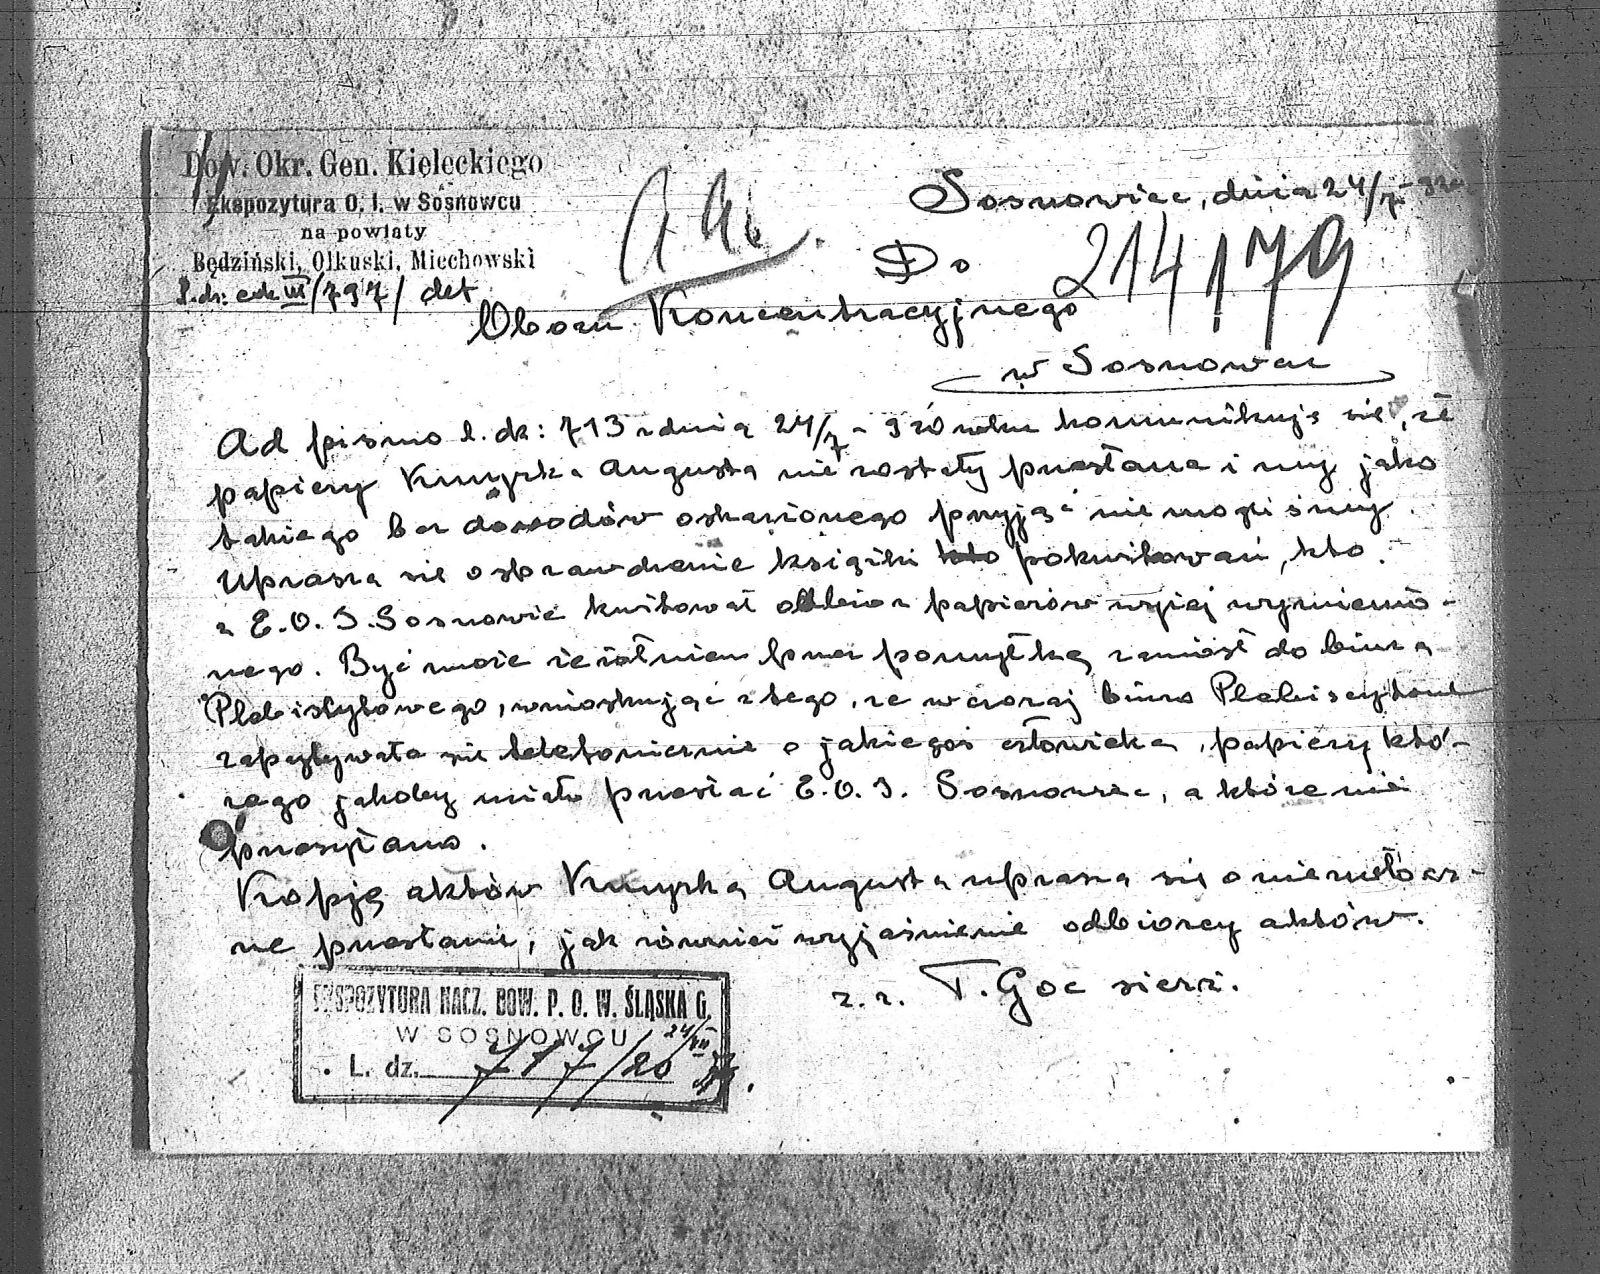 Dow. Okr. Gen. Kieleckiego
Ekspozytura O. I. w Sosnowcu
na powiaty
Będziński, Olkuski, Miechowski
L.dz: eck III/797/ det
Sosnowiec, dnia 24/7- 920
214/79
Do
Obozu Koncentracyjnego
w Sosnowcu
Ad pismo l. dz: 713 z dnia 24/7 - 920 roku komunikuje się, że
papiery Kmyrka Augusta nie zostały przesłane i my jako
takiego bez dowodów oskarżonego przyjąć nie mogliśmy.
Uprasza się o sprawdzenie książki kto pokwitowań, kto
z E.O.I. Sosnowic kwitował odbiór papierów wyżej wymienio-
nego. Być może że żołnierz przez pomyłkę zaniósł do biura
Plebistytowego, wnioskując z tego, że wczoraj biuro Plebiscytowe
zapytywało się telefonicznie o jakiegoś człowieka, papiery któ-
rego jakoby miało przesłać E.O.I. Sosnowiec, a które nie
przesyłano.
Kopję aktów Kmyrka Augusta uprasza się o niezwłocz-
ne przesłanie, jak również wyjaśnienie odbiorcy aktów.
z. r. T. Goc sierż.
EKSPOZYTURA NACZ. DOW. P. O. W. ŚLĄSKA G.
W SOSNOWCU 24/VII
L. dz. 717/20